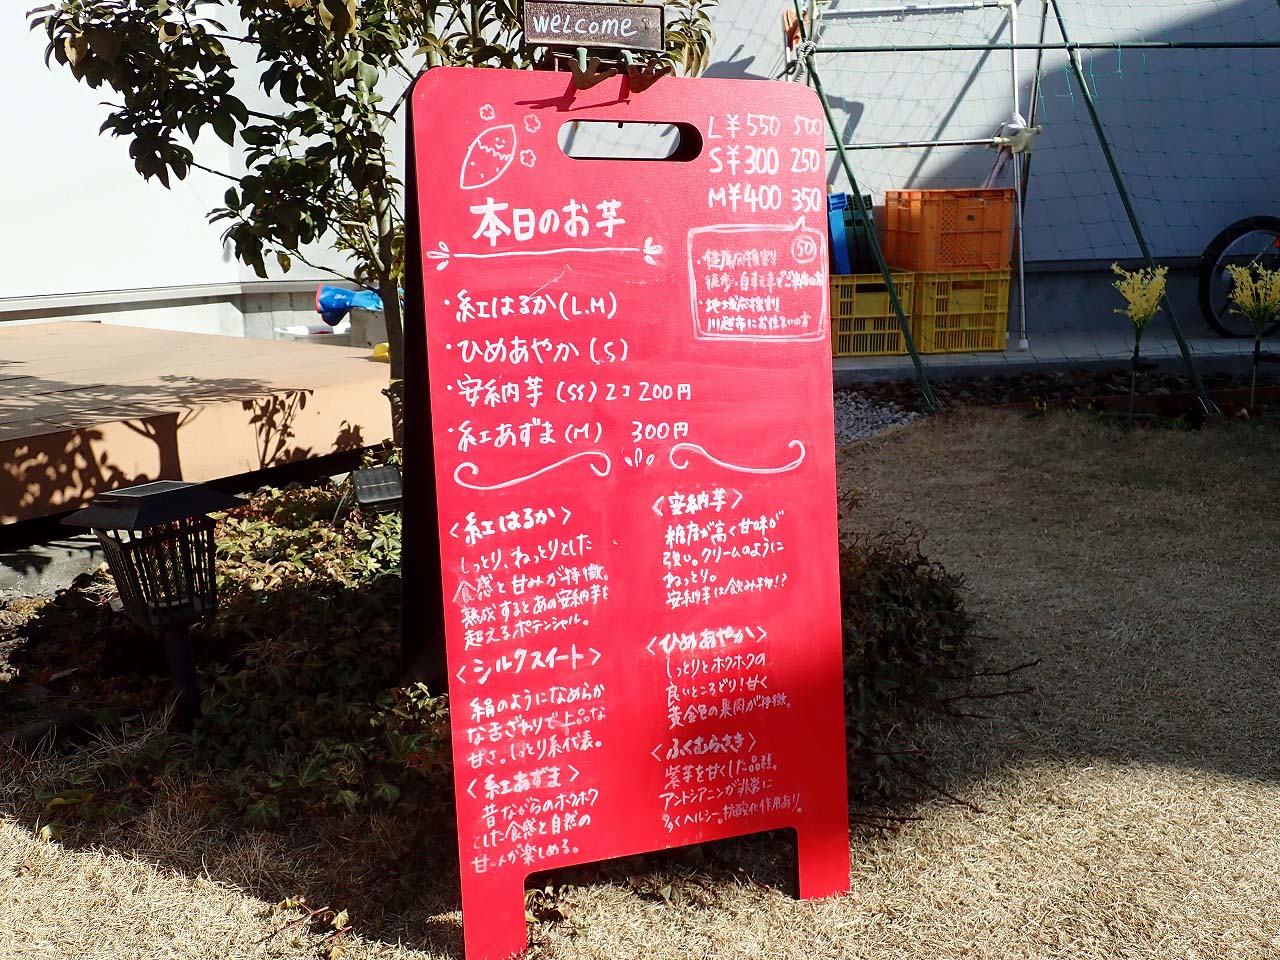 welcome
L ¥550 500
S ¥300 250
M ¥400 350
本日のお芋
50
・健康応援割
徒歩・自転車でご来店の方
・地域応援割
川越市にお住まいの方
・紅はるか(L.M)
・ひめあやか(S)
・安納芋(SS)2コ200円
・紅あずま(M) 300円
<紅はるか>
しっとり、ねっとりとした
食感と甘みが特徴。
熟成するとあの安納芋を
超えるポテンシャル。
<シルクスイート>
絹のようになめらか
な舌ざわりで上品な
甘さ。しっとり系代表。
<紅あずま>
昔ながらのホクホク
とした食感と自然の
甘みが楽しめる。
<安納芋>
糖度が高く甘味が
強い。クリームのように
ねっとり。
安納芋は飲み物!?
<ひめあやか>
しっとりとホクホクの
良いところどり!甘く
黄金色の果肉が特徴。
<ふくむらさき>
紫芋を甘くした品種。
アントシアニンが非常に
多くヘルシー。抗酸化作用あり。